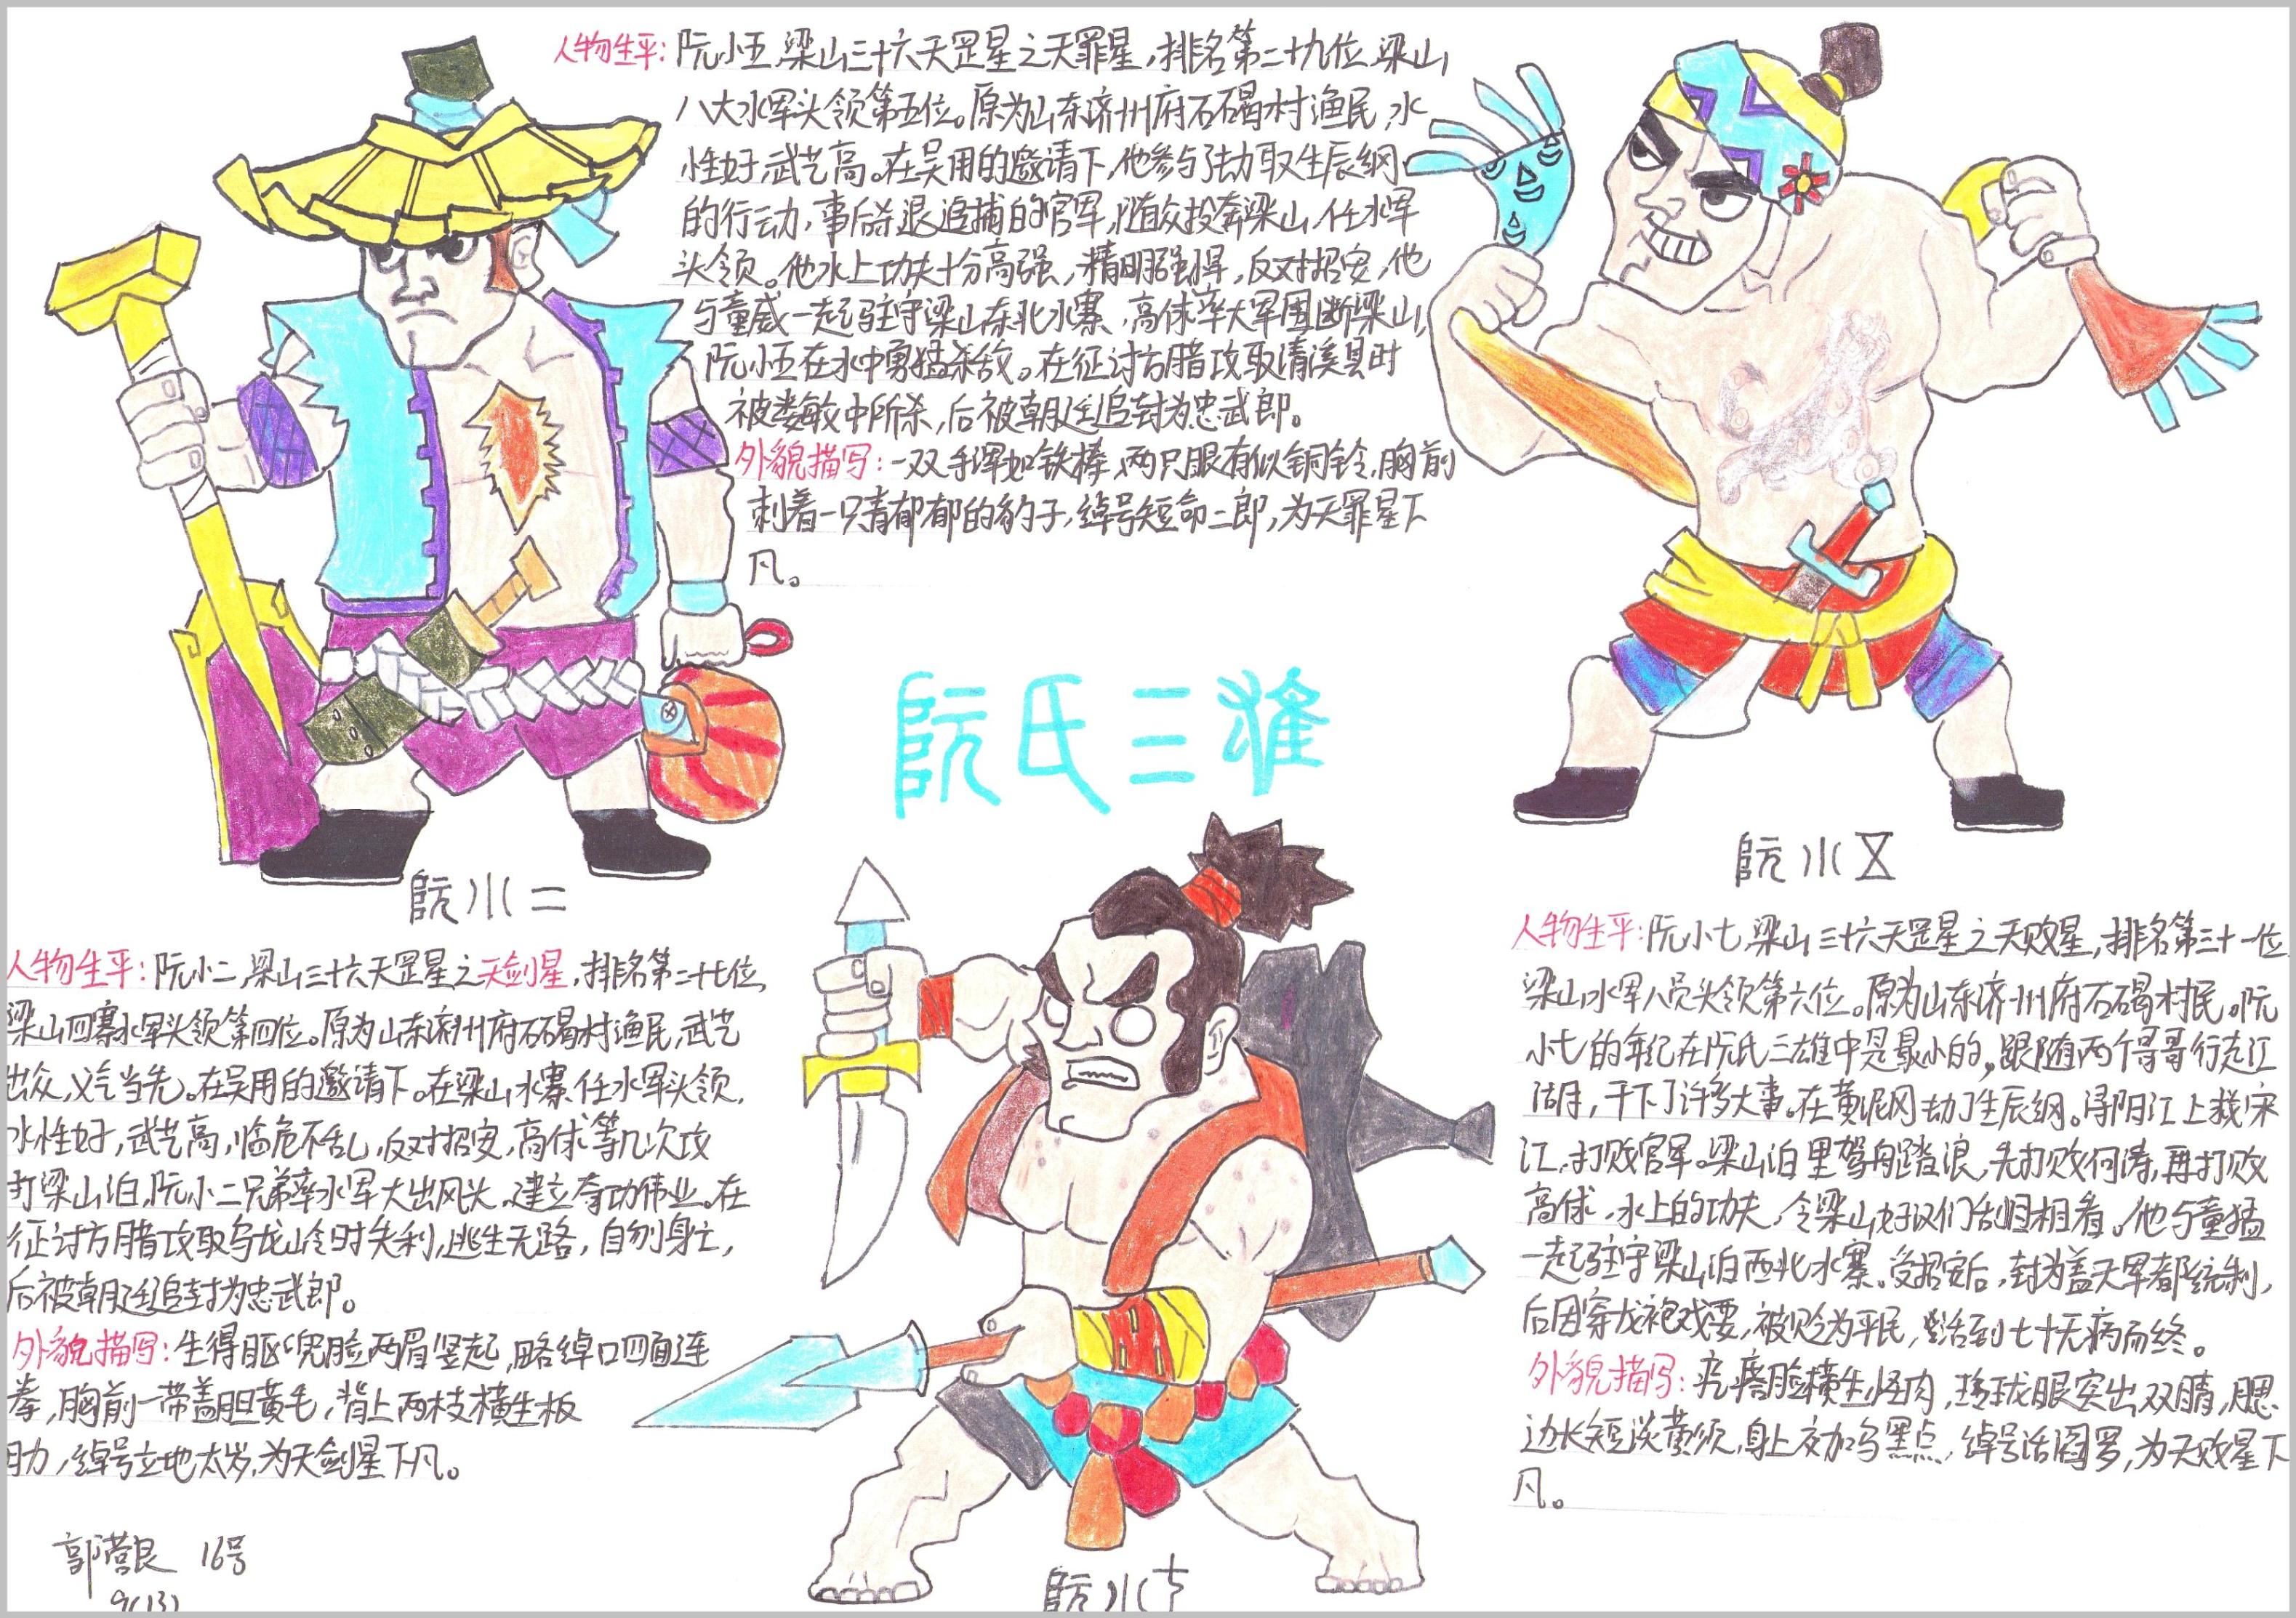 人物生平:阮小五,梁山三十六天罡星之天罪星,排名第二十九位,梁山
八大水军头领第五位。原为山东济州府石碣村渔民,水
性好,武艺高。在吴用的邀请下,他参与了劫取生辰纲
的行动,事后杀退追捕的官军,随众投奔梁山,任水军
头领。他水上功夫十分高强,精明强悍,反对招安,他
与童威一起驻守梁山东北水寨,高俅率大军围断梁山,
阮小五在水中勇猛杀敌。在征讨方腊攻取清溪县时
被娄敏中所杀,后被朝廷追封为忠武郎。
外貌描写:一双手浑如铁棒,两只眼有似铜铃,胸前
刺着一只青郁郁的豹子,绰号短命二郎,为天罪星下
凡。
阮氏三雄
阮小二
阮小五
阮小七
人物生平:阮小二,梁山三十六天罡星之天剑星,排名第二十七位,
梁山四寨水军头领第四位。原为山东济州府石碣村渔民,武艺
出众,义气当先。在吴用的邀请下。在梁山水寨任水军头领,
水性好,武艺高,临危不乱,反对招安,高俅等几次攻
打梁山泊,阮小二兄弟率水军大出风头,建立奇功伟业。在
征讨方腊攻取乌龙岭时失利,逃生无路,自刎身亡,
后被朝廷追封为忠武郎。
外貌描写:生得眍兜脸两眉竖起,略绰口四面连
拳,胸前一带盖胆黄毛,背上两枝横生板
肋,绰号立地太岁,为天剑星下凡。
人物生平:阮小七,梁山三十六天罡星之天败星,排名第三十一位,
梁山水军八员头领第六位。原为山东济州府石碣村民。阮
小七的年纪在阮氏三雄中是最小的,跟随两个哥哥行走江
湖,干下了许多大事。在黄泥冈劫了生辰纲。浔阳江上救宋
江,打败官军。梁山泊里驾舟踏浪,先打败何涛,再打败
高俅,水上的功夫,令梁山好汉们刮目相看。他与童猛
一起驻守梁山泊西北水寨。受招安后,封为盖天军都统制,
后因穿龙袍戏耍,被贬为平民,活到七十无病而终。
外貌描写:疙瘩脸横生怪肉,玲珑眼突出双睛,腮
边长短淡黄须,身上交加乌黑点,绰号活阎罗,为天败星下
凡。
16号
9(13)